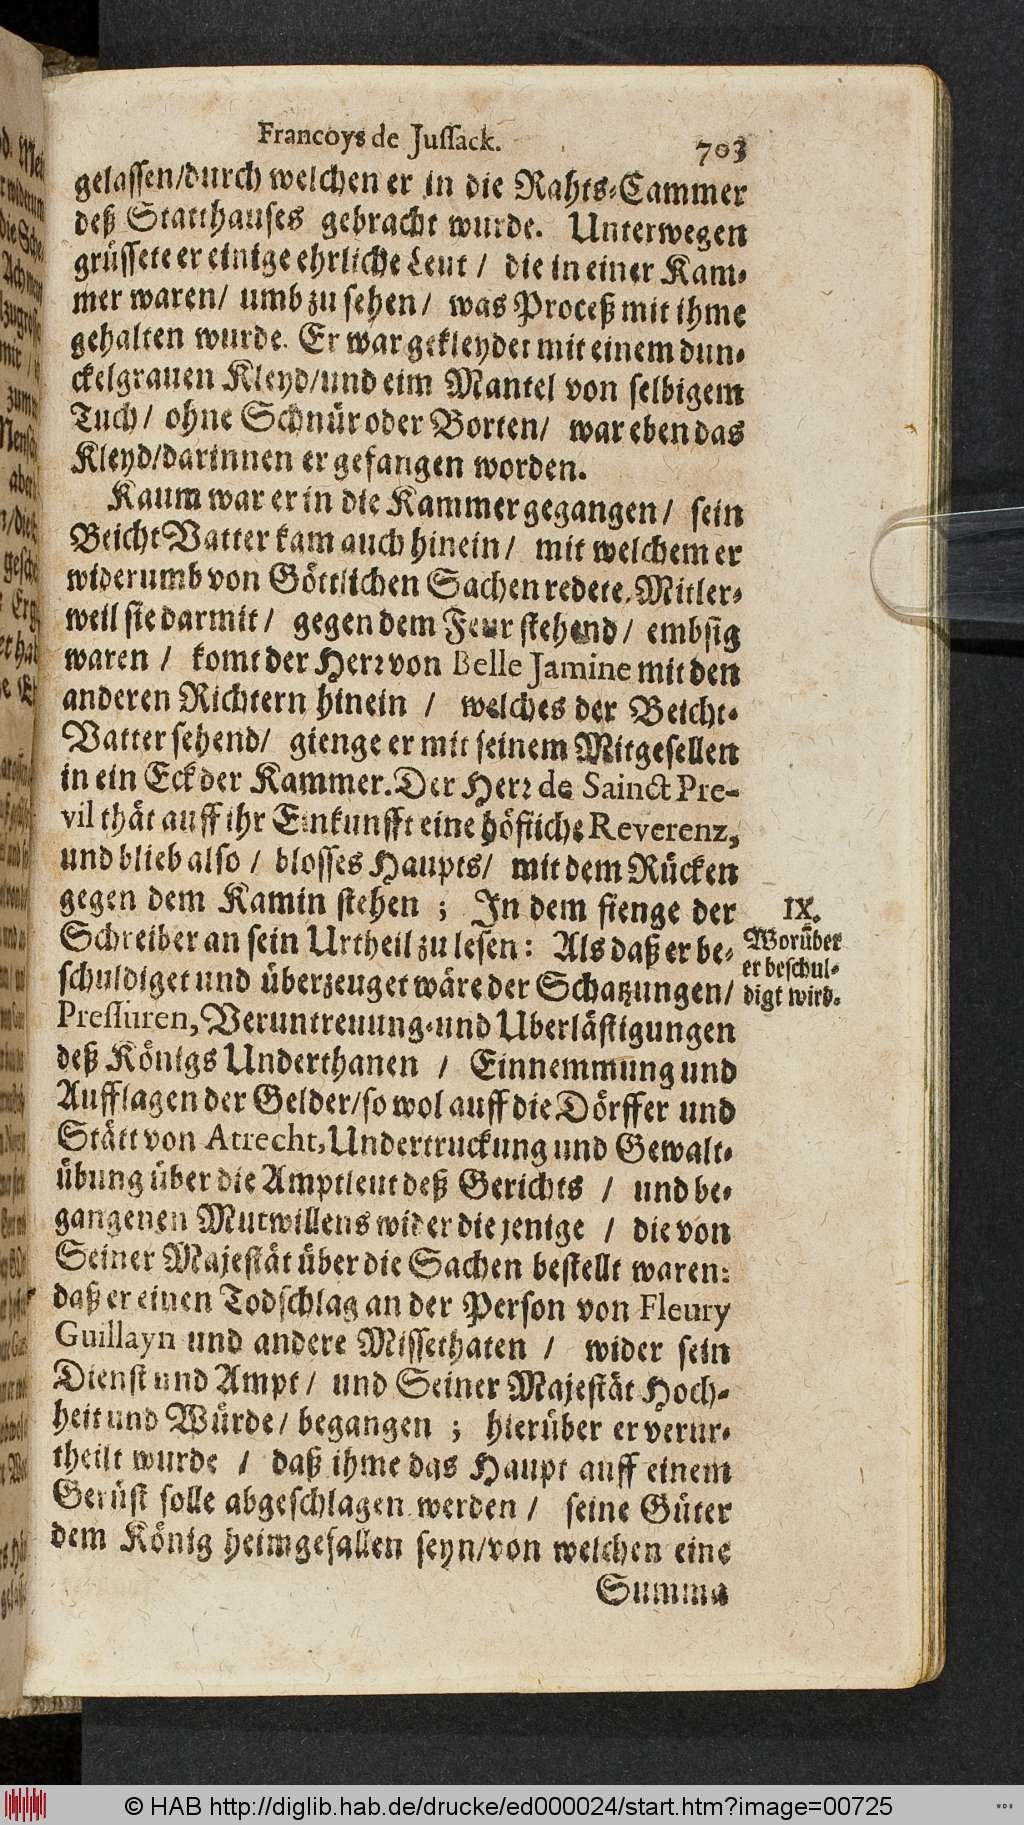 Francoys de Jussack. 703
gelassen/durch welchen er in die Rahts-Cammer
deß Statthauses gebracht wurde. Unterwegen
grüssete er einige ehrliche Leut / die in einer Kam-
mer waren/ umb zu sehen/ was Proceß mit ihme
gehalten wurde. Er war gekleydet mit einem dun-
ckelgrauen Kleyd/und eim Mantel von selbigem
Tuch/ ohne Schnür oder Borten/ war eben das
Kleyd/darinnen er gefangen worden.
Kaum war er in die Kammer gegangen/ sein
Beicht Vatter kam auch hinein/ mit welchem er
widerumb von Göttlichen Sachen redete. Mitler-
weil sie darmit/ gegen dem Feur stehend/ embsig
waren / komt der Herr von Belle Jamine mit den
anderen Richtern hinein / welches der Beicht-
Vatter sehend/ gienge er mit seinem Mitgesellen
in ein Eck der Kammer. Der Herr de Sainct Pre-
vil thät auff ihr Einkunfft eine höfliche Reverenz,
und blieb also / blosses Haupts/ mit dem Rücken
gegen dem Kamin stehen ; In dem fienge der
Schreiber an sein Urtheil zu lesen: Als daß er be-
schuldiget und überzeuget wäre der Schatzungen/
Pressuren, Veruntreuung-und Uberlästigungen
deß Königs Underthanen / Einnemmung und
Aufflagen der Gelder/so wol auff die Dörffer und
Stätt von Atrecht, Undertruckung und Gewalt-
übung über die Amptleut deß Gerichts / und be-
gangenen Mutwillens wider die jenige / die von
Seiner Majestät über die Sachen bestellt waren:
daß er einen Todschlag an der Person von Fleury
Guillayn und andere Missethaten / wider sein
Dienst und Ampt/ und Seiner Majestät Hoch-
heit und Würde/ begangen ; hierüber er verur-
theilt wurde / daß ihme das Haupt auff einem
Gerüst solle abgeschlagen werden/ seine Güter
dem König heimgefallen seyn/von welchen eine
Summa
IX.
Worüber
er beschul-
digt wird.
© HAB http://diglib.hab.de/drucke/ed000024/start.htm?image=00725